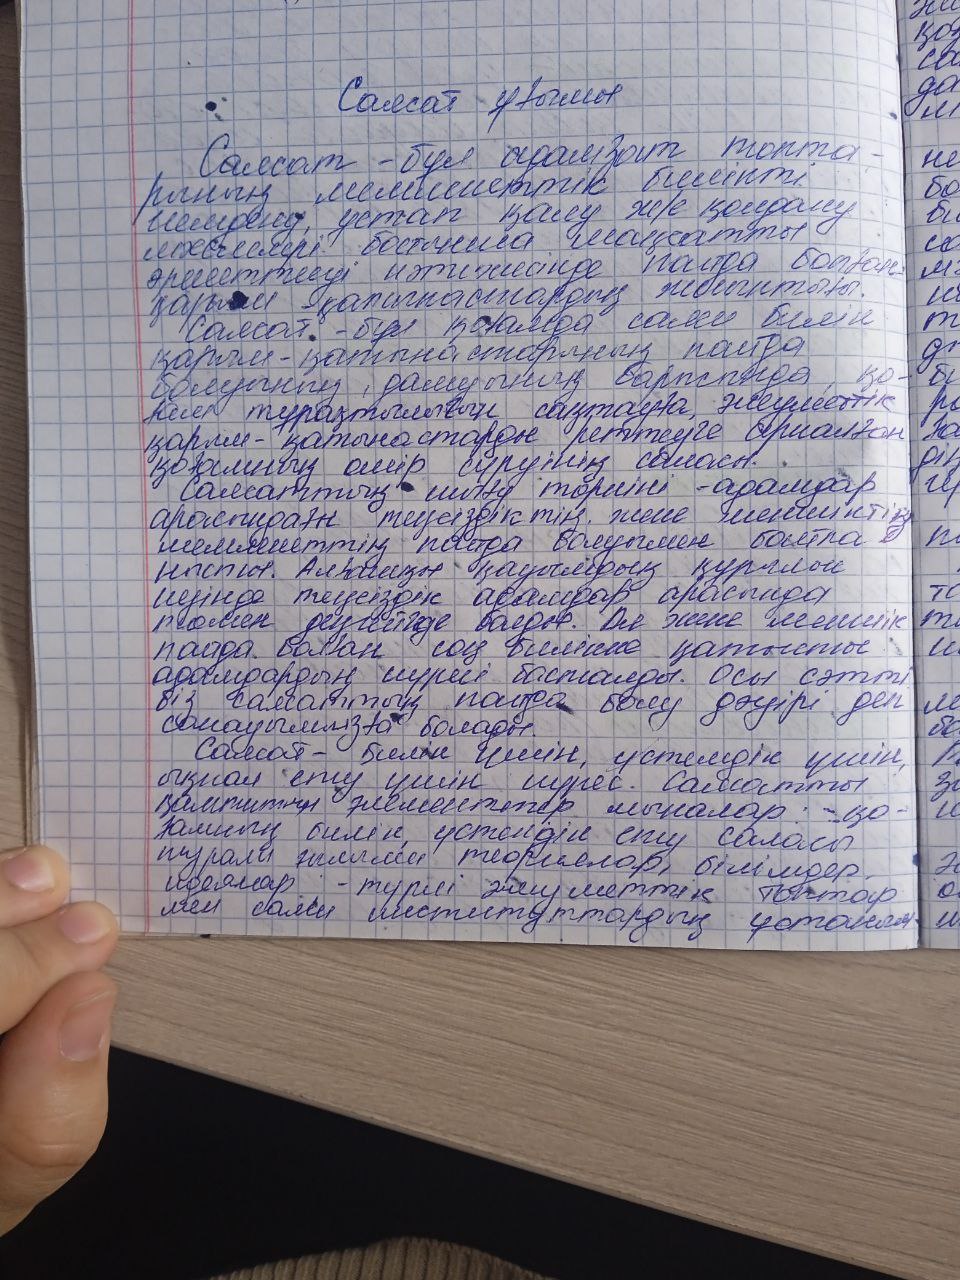 Саясат ұғымы
Саясат - бұл адамзат топта-
рының мемлекеттік билікті
иемдену, ұстап қалу ж/е қолдану
мәселелері бойынша мақсатты
әрекеттесуі нәтижесінде пайда болған
қарым-қатынастардың жиынтығы.
Саясат - бұл қоғамда саяси билік
қарым-қатынастарының пайда
болуының, дамуының барысында, қо-
ғам тұрақтылығын сақтауға, әлеуметтік
қарым-қатынастарды реттеуге арналған
қоғамның өмір сүруінің саласы.
Саясаттың шығу төркіні - адамдар
арасындағы теңсіздіктің және меншіктің
мемлекеттің пайда болуымен байла
нысты. Алғашқы қауымдық құрылыс
кезінде теңсіздік адамдар арасында
төмен деңгейде болды. Ал жеке меншік
пайда болған соң билікке қатысты
адамдардың күресі басталды. Осы сәтті
біз саясаттың пайда болу дәуірі деп
санауымызға болады.
Саясат - билік үшін, үстемдік үшін,
ықпал ету үшін күрес. Саясатты
қамтитын элементтер мыналар: - қо-
ғамның билік, үстемдік ету саласы
туралы ғылыми теориялар, білімдер,
идеялар - түрлі әлеуметтік топтар
мен саяси институттардың ұстаным